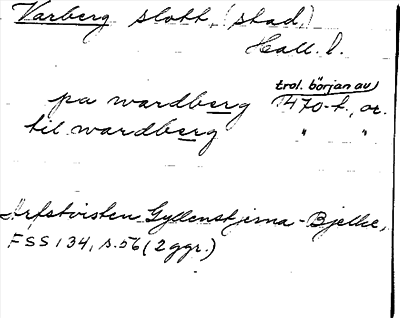 Varberg slott, (stad,)
Hall. l.
trol. början av
pa wardberg 1470-t., or.
til wardberg " "
Arfstvisten Gyllenstjerna-Bjelke,
FSS 134, s. 56 (2 ggr.)